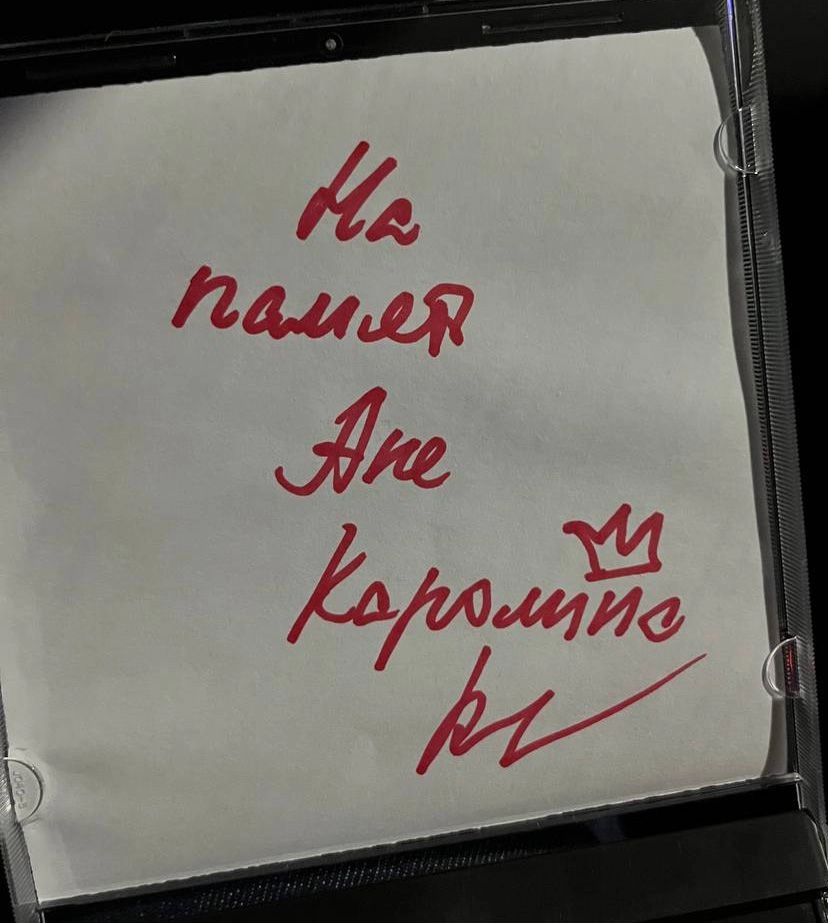 На
память
Ане
Каролина